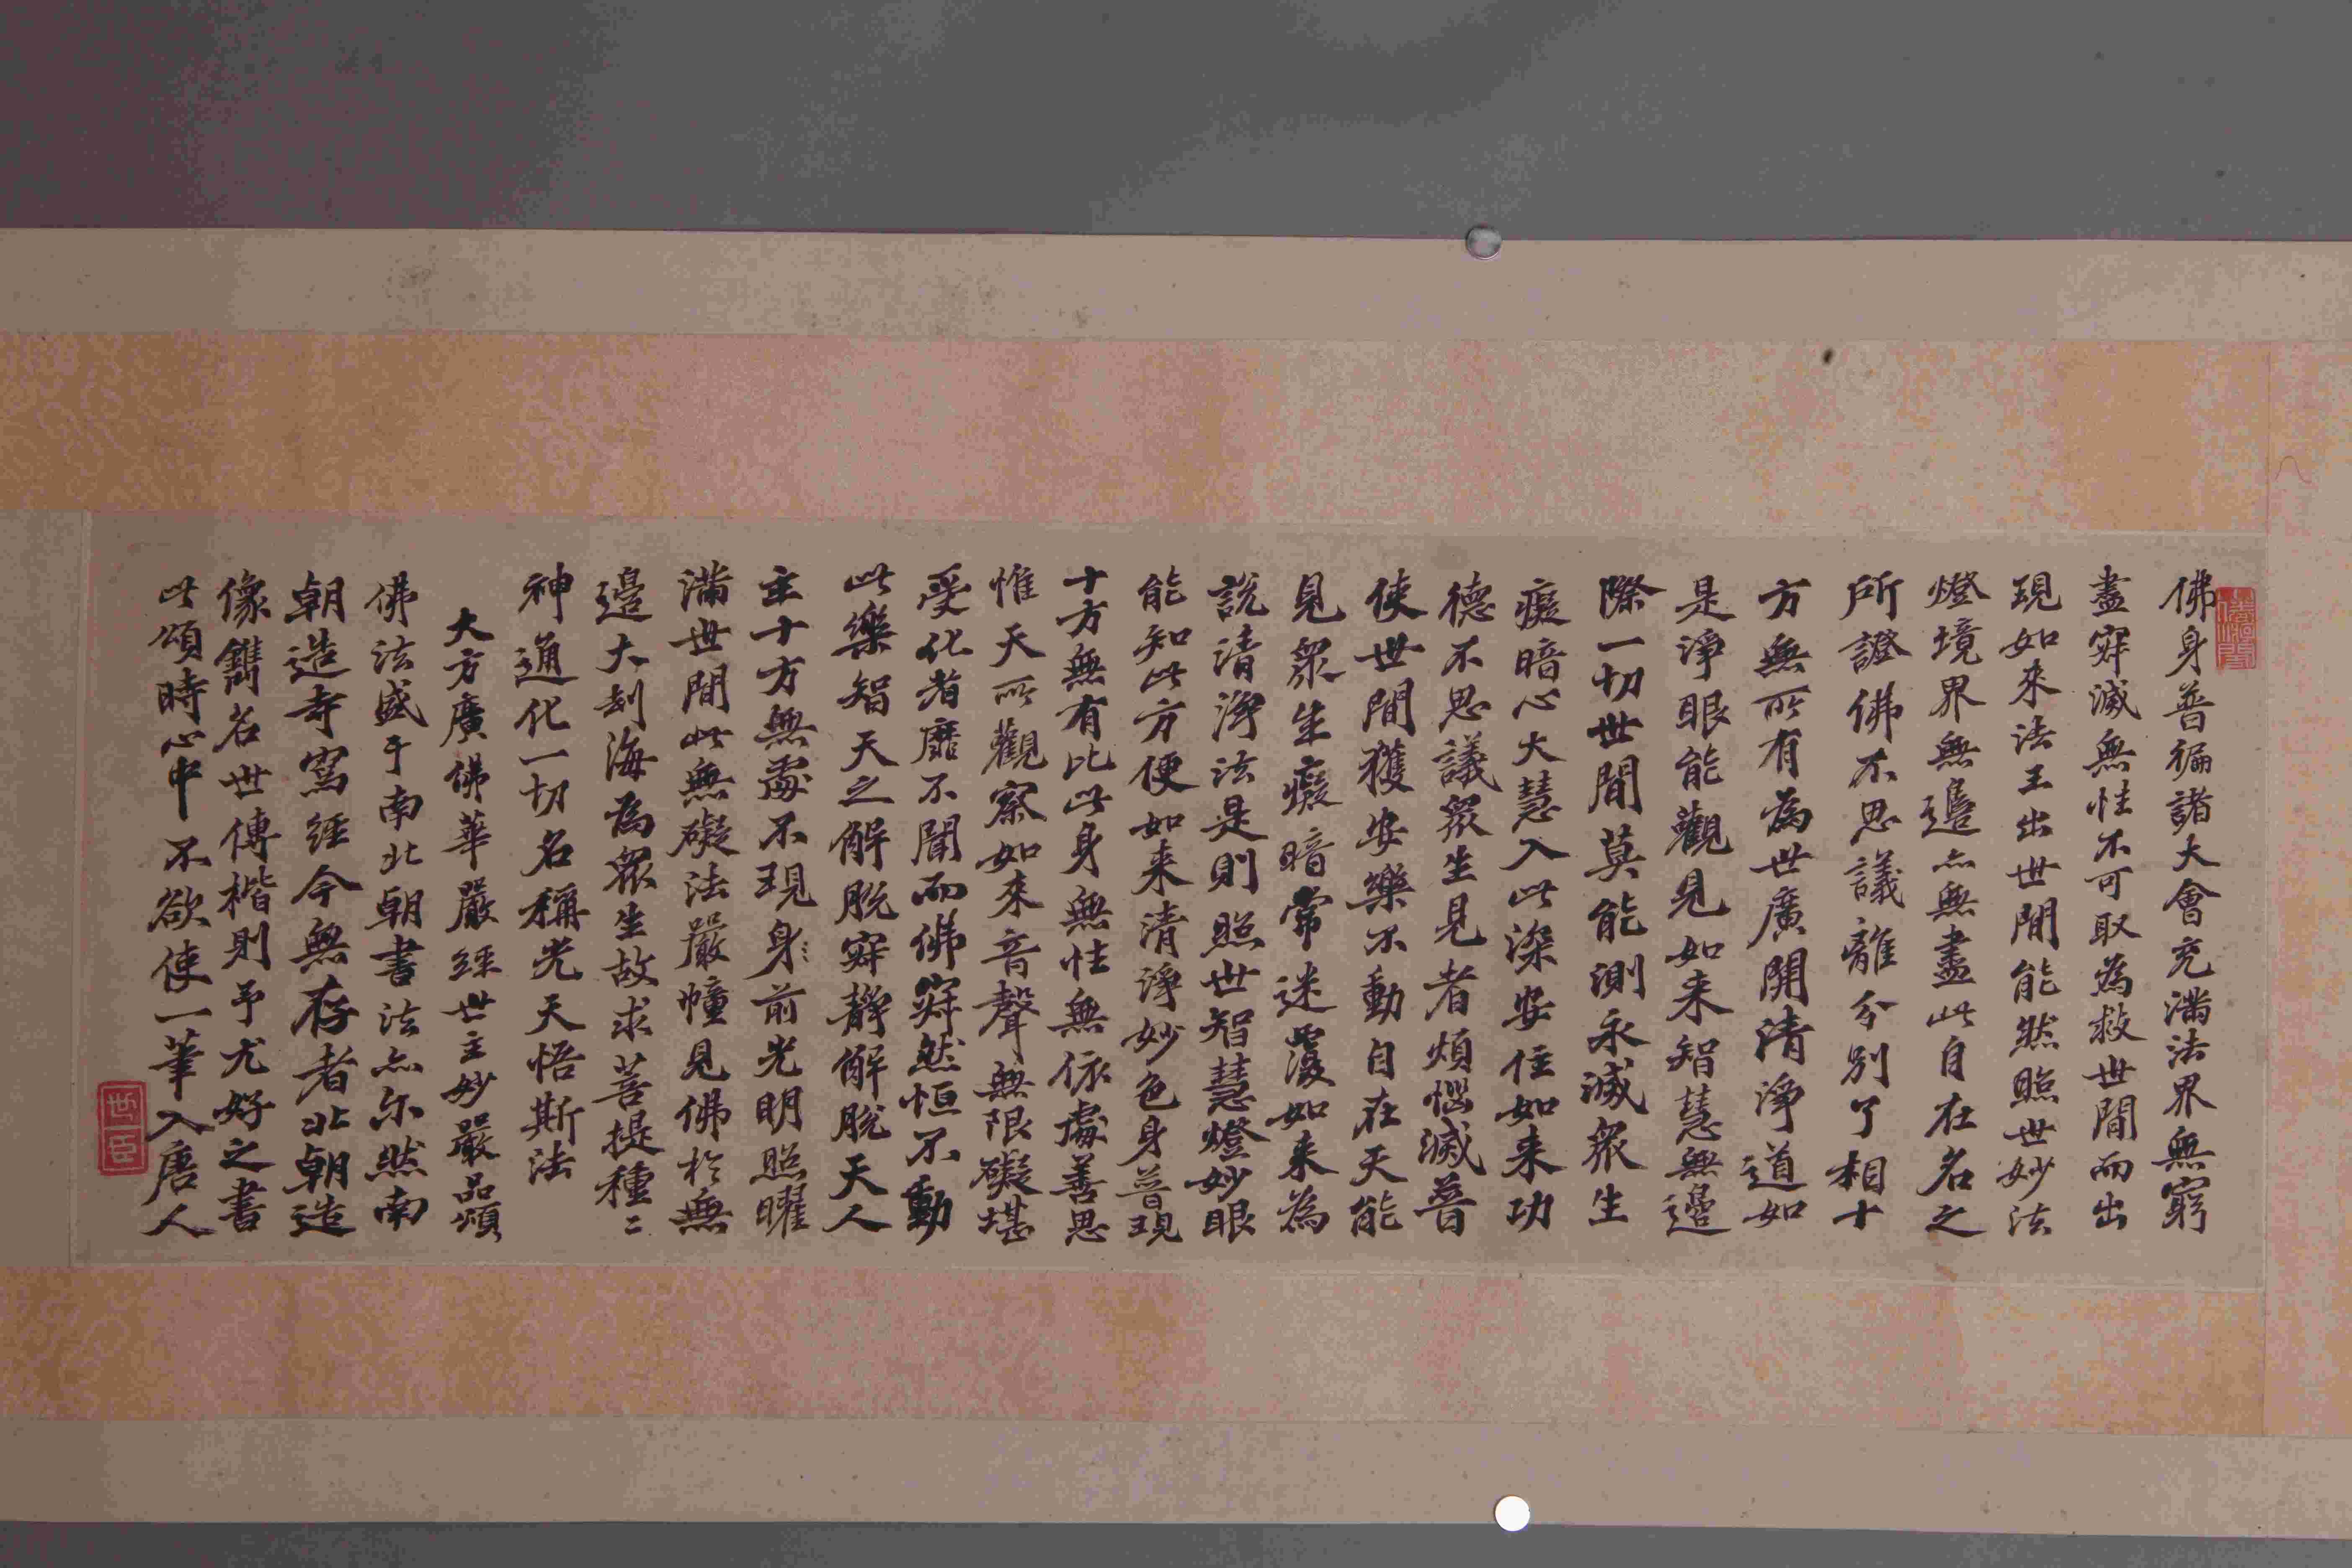 佛身普徧諸大會充滿法界無窮
盡寂滅無性不可取為救世間而出
現如來法王出世間能然照世妙法
燈境界無邊亦無盡此自在名之
所證佛不思議離分別了相十
方無所有為世廣開清淨道如
是淨眼能觀見如来智慧無邊
際一切世間莫能測永滅衆生
癡暗心大慧入此深安住如来功
德不思議衆生見者煩惱滅普
使世間獲安樂不動自在天能
見衆生癡暗常迷覆如来為
說清淨法是則照世智慧燈妙眼
能知此方便如来清淨妙色身普現
十方無有比此身無性無依處善思
惟天所觀察如來音聲無限礙堪
受化者靡不聞而佛寂然恒不動
此樂智天之解脫寂靜解脫天人
主十方無處不現身〻前光明照曜
滿世間此無礙法嚴幢見佛於無
邊大劫海為衆生故求菩提種〻
神通化一切名稱光天悟斯法
大方廣佛華嚴經世主妙嚴品頌
佛法盛于南北朝書法亦尔然南
朝造寺寫經今無存者北朝造
像鐫名世傳楷則予尤好之書
此頌時心中不欲使一筆入唐人
世臣